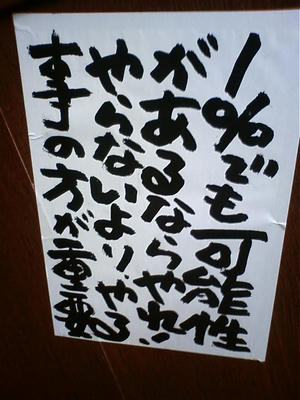 1%でも可能性
があるならやれ!
やらないよりやる
事の方が重要